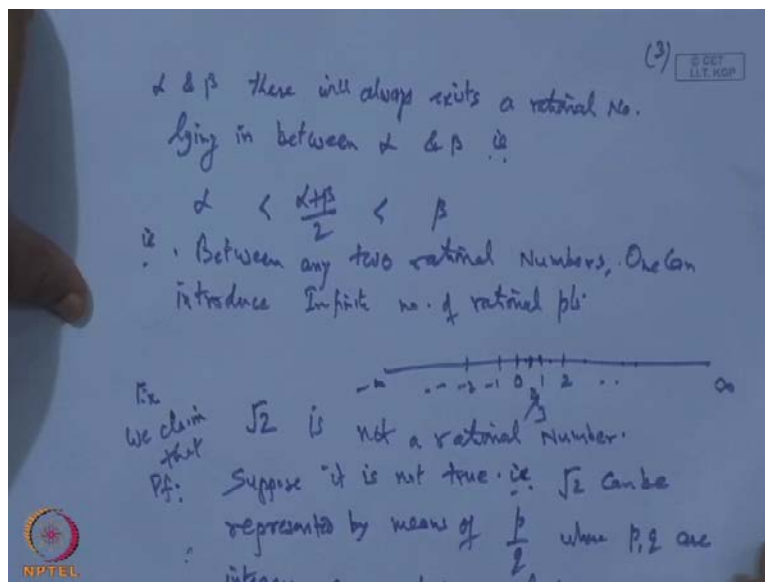 (3)
© CET
I.I.T. KGP
α & β there will always exists a rational No.
lying in between α & β ie
α < α+β/2 < β
ie. Between any two rational Numbers, One Can
introduce Infinite no. of rational pts.
-∞ ... -2 -1 0 1 2 .. ∞
Ex
We claim that √2 is not a rational Number.
Pf: Suppose it is not true. ie √2 Can be
represented by means of p/q where p, q are
NPTEL